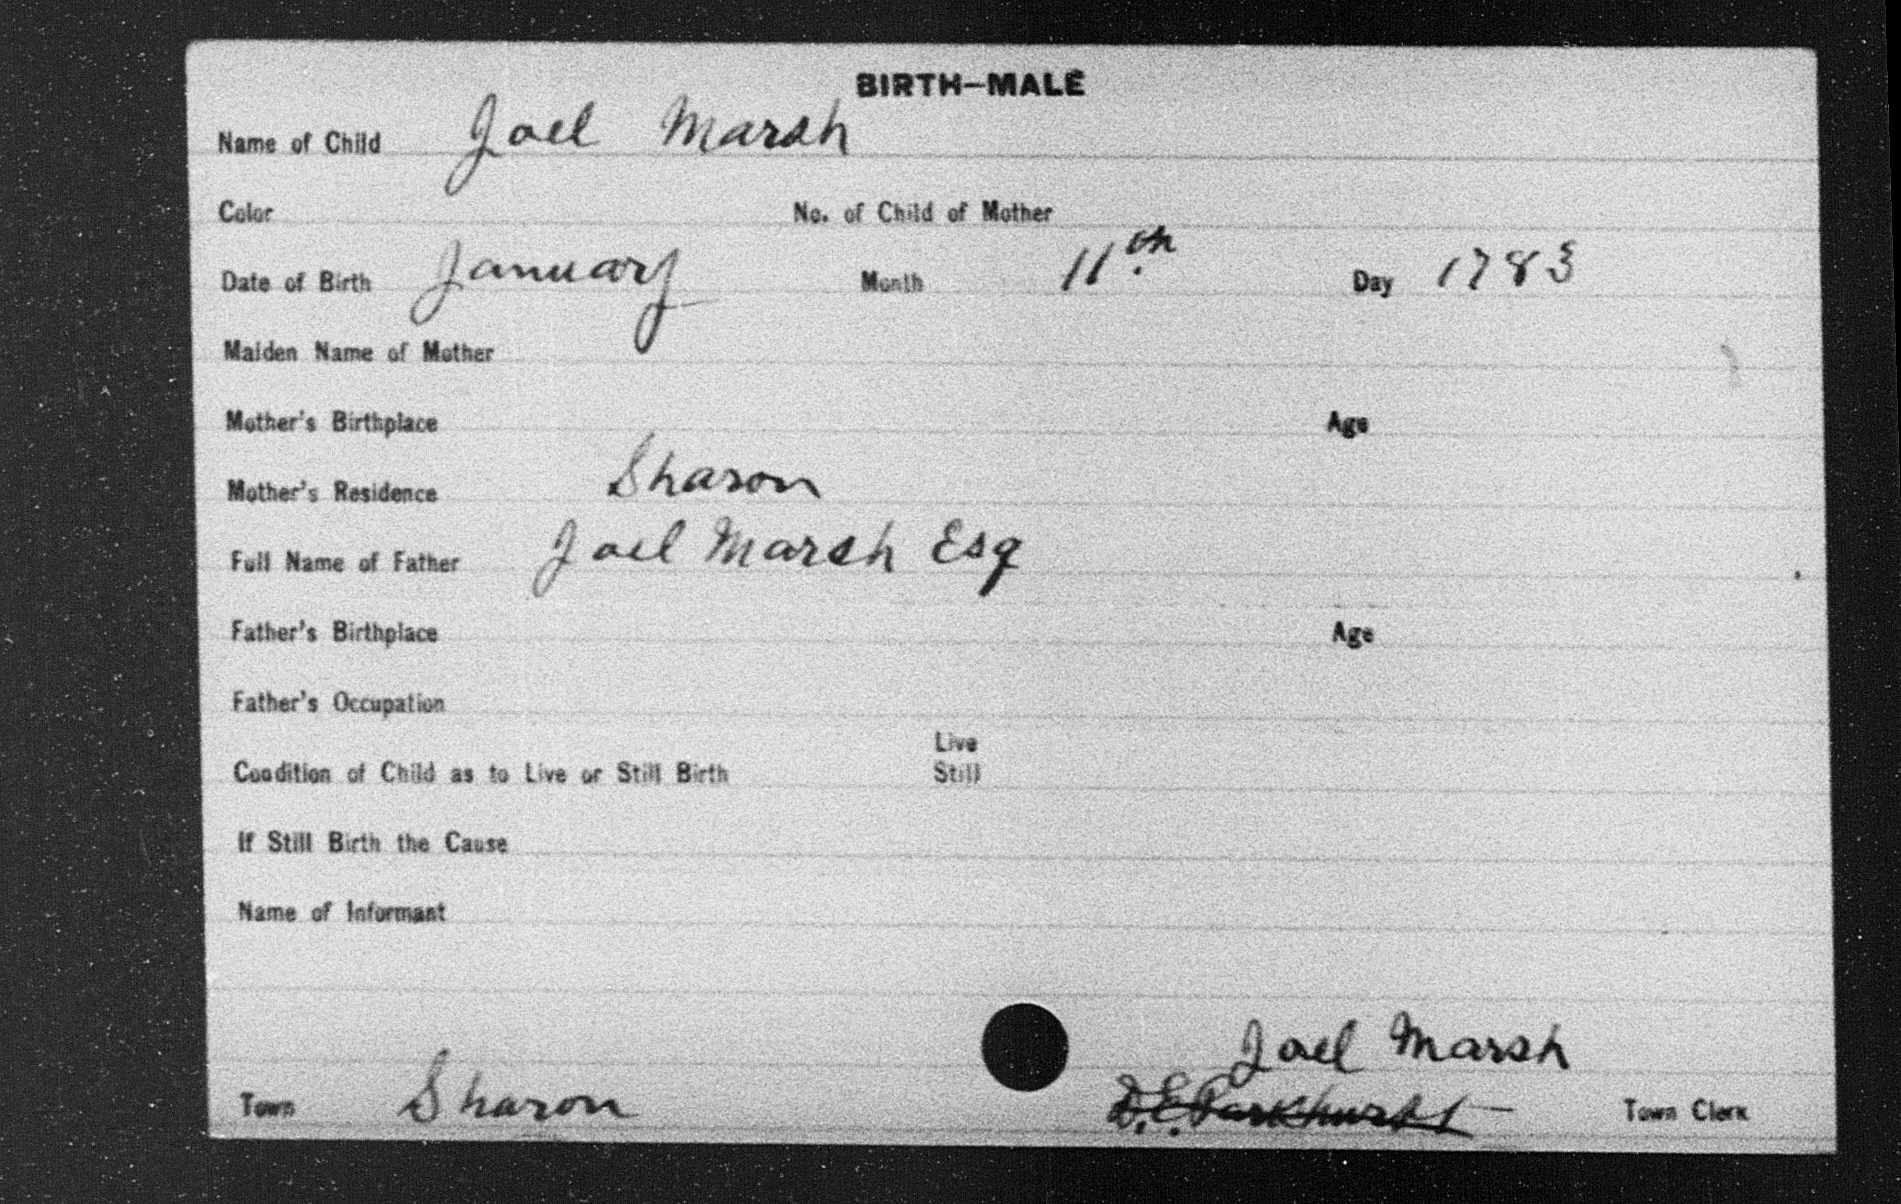 BIRTH—MALE
Name of Child Joel Marsh
Color No. of Child of Mother
Date of Birth January Month 11th Day 1783
Maiden Name of Mother
Mother's Birthplace Age
Mother's Residence Sharon
Full Name of Father Joel Marsh Esq
Father's Birthplace Age
Father's Occupation
Live
Condition of Child as to Live or Still Birth Still
If Still Birth the Cause
Name of Informant
Joel Marsh
Town Sharon D.E. Parkhurst Town Clerk